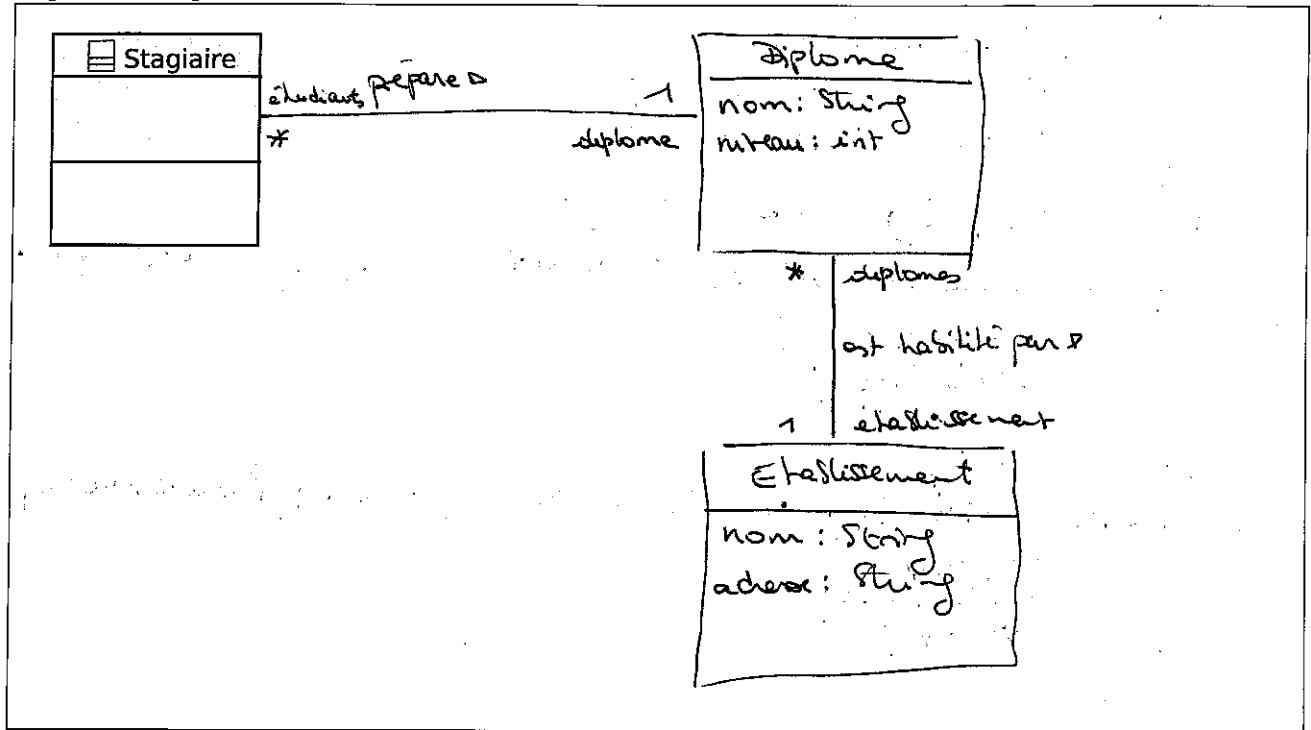 Stagiaire
étudiants prépare ▷
*
1
diplome
Diplome
nom: String
niveau: int
* diplomes
est habilité par ▷
1 etablissement
Etablissement
nom: String
adresse: String